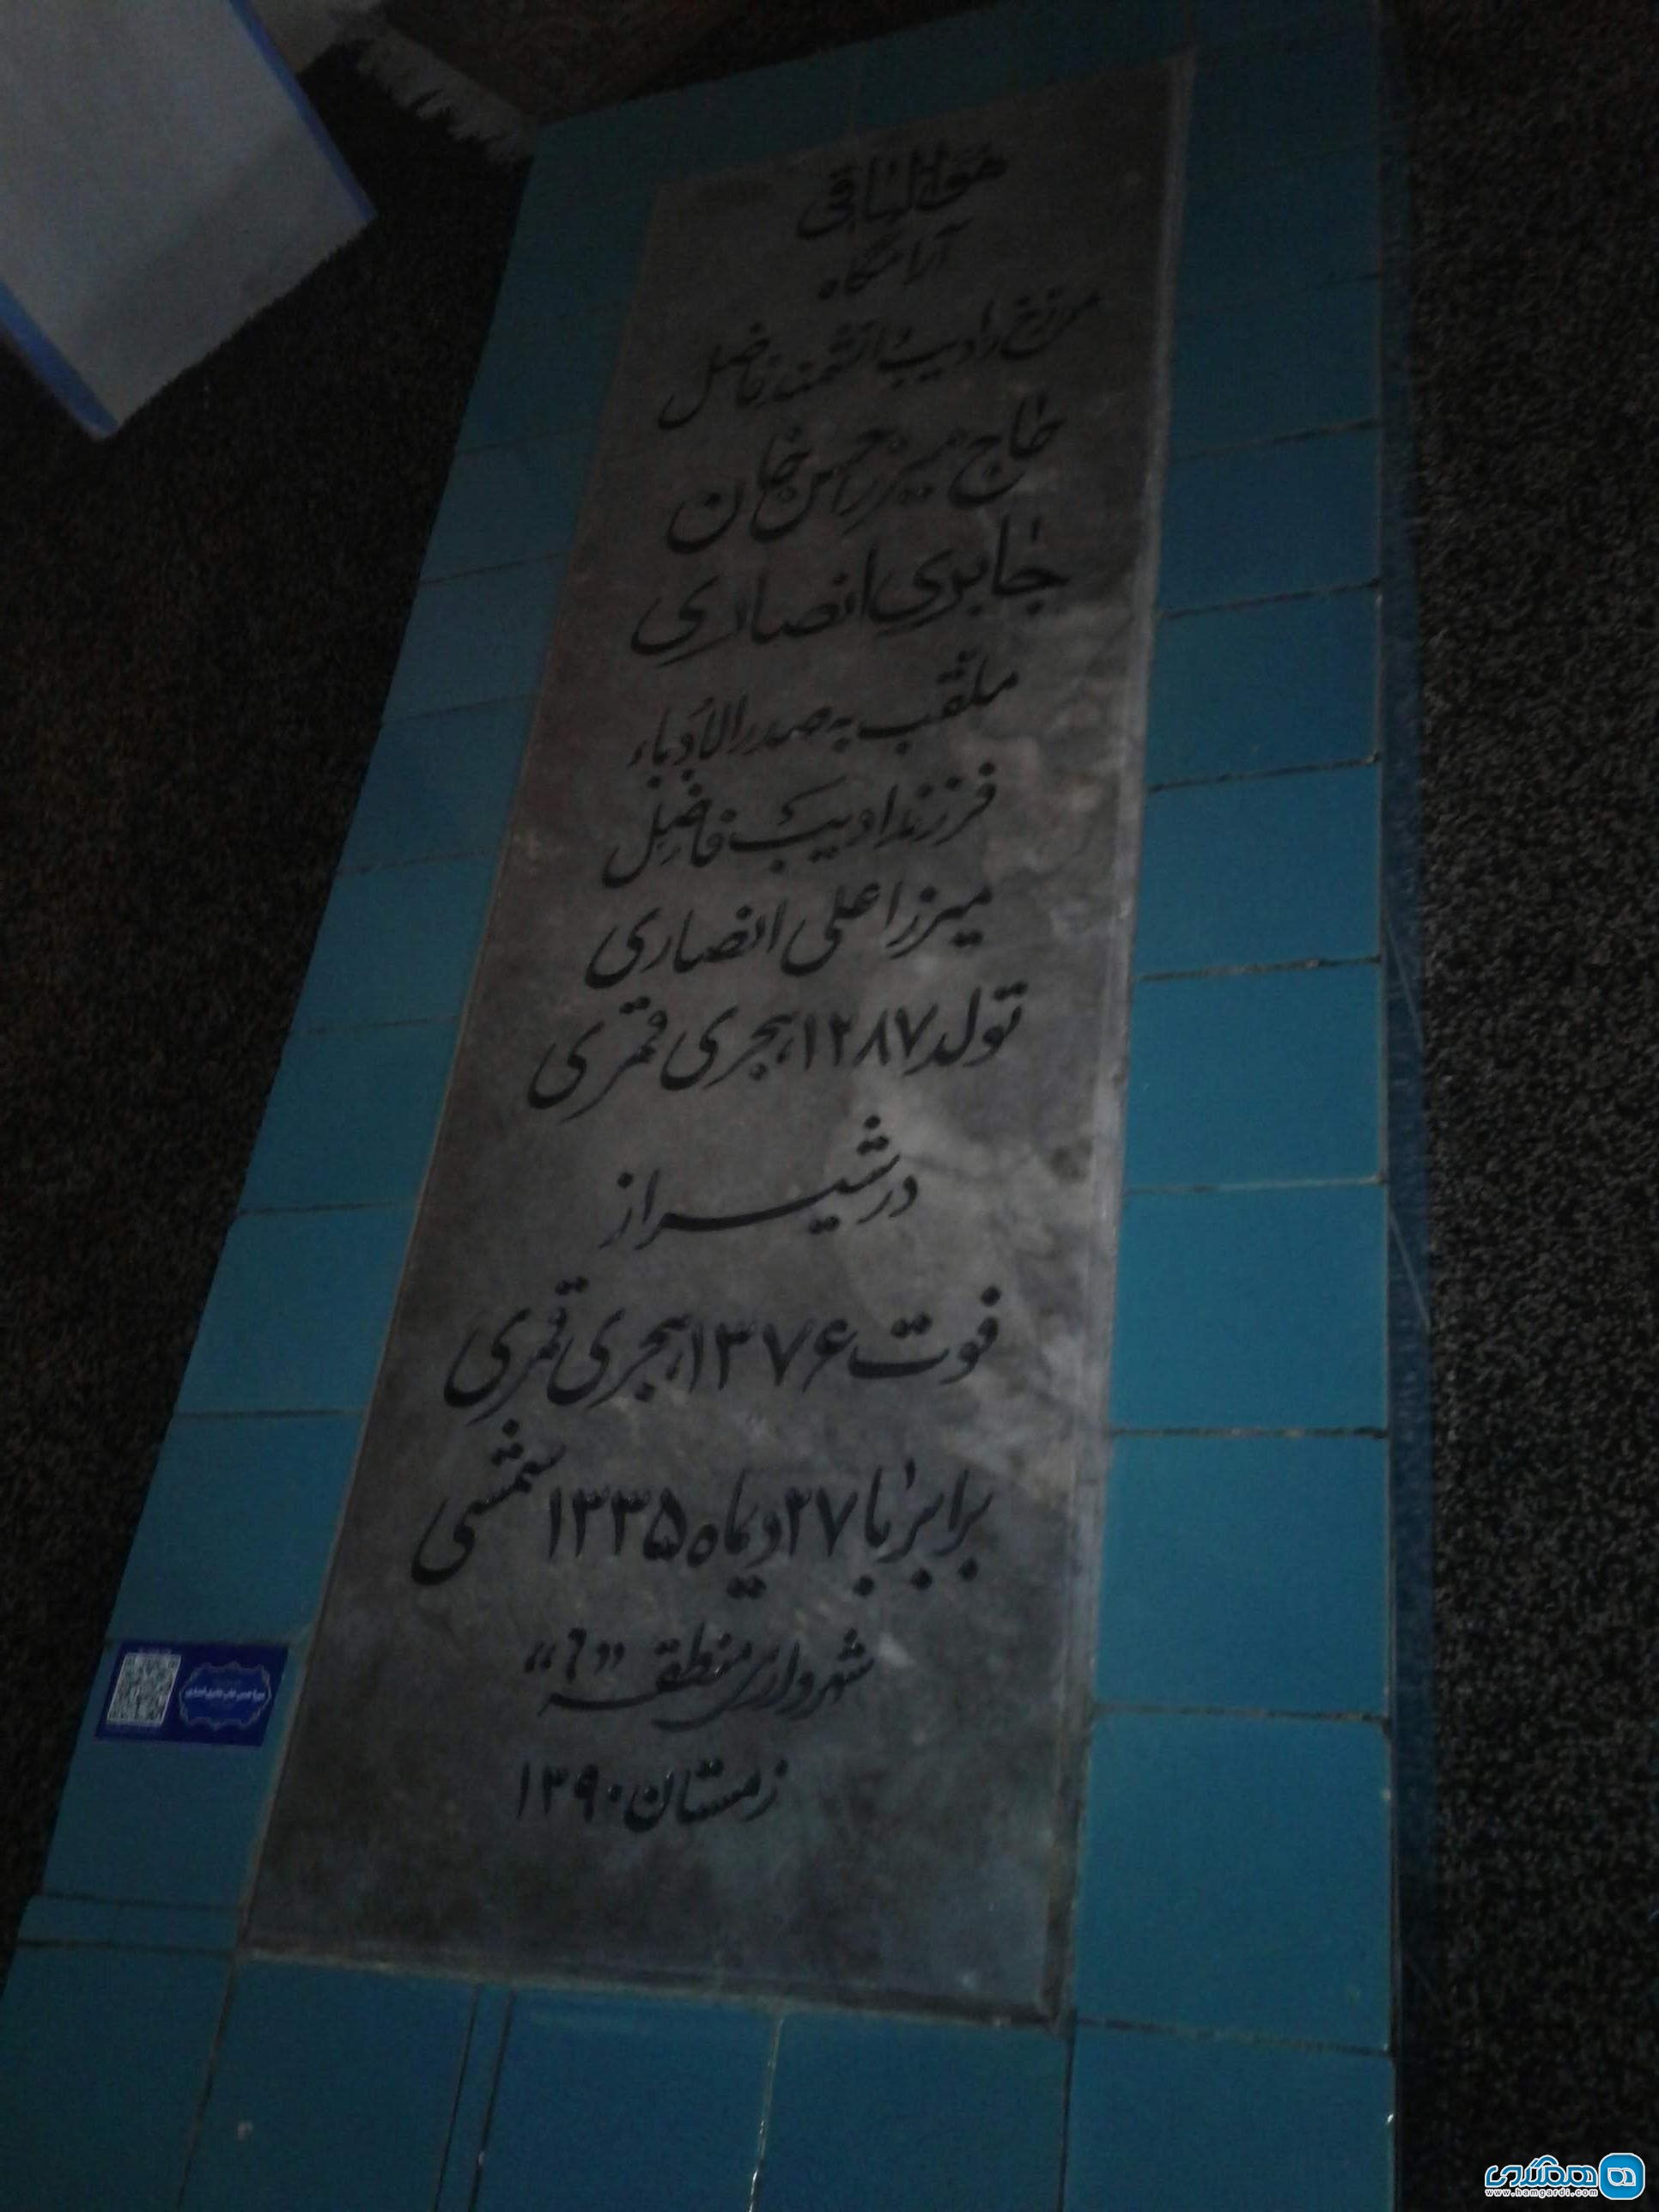 هوالباقی
آرامگاه
مورخ و ادیب دانشمند فاضل
حاج میرزا حسن خان
جابری انصاری
ملقب به صدرالأدباء
فرزند ادیب فاضل
میرزا علی انصاری
تولد ۱۲۸۷ هجری قمری
در شیراز
فوت ۱۳۷۶ هجری قمری
برابر با ۲۷ دیماه ۱۳۳۵ شمسی
شهرداری منطقه "۶"
زمستان ۱۳۹۰
همگردی
www.hamgardi.com